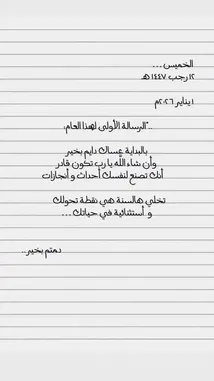 الخميس ...
١٢ رجب ١٤٤٧ هـ
١ يناير ٢٠٢٦م
"الرسالة الأولى لهذا العام:..
بالبداية عساك دايم بخير
وأن شاء الله يا رب تكون قادر
أنك تصنع لنفسك أحداث و أنجازات
تخلي هالسنة هي نقطة تحولك
و أستثنائية في حياتك ...
دمتم بخير..